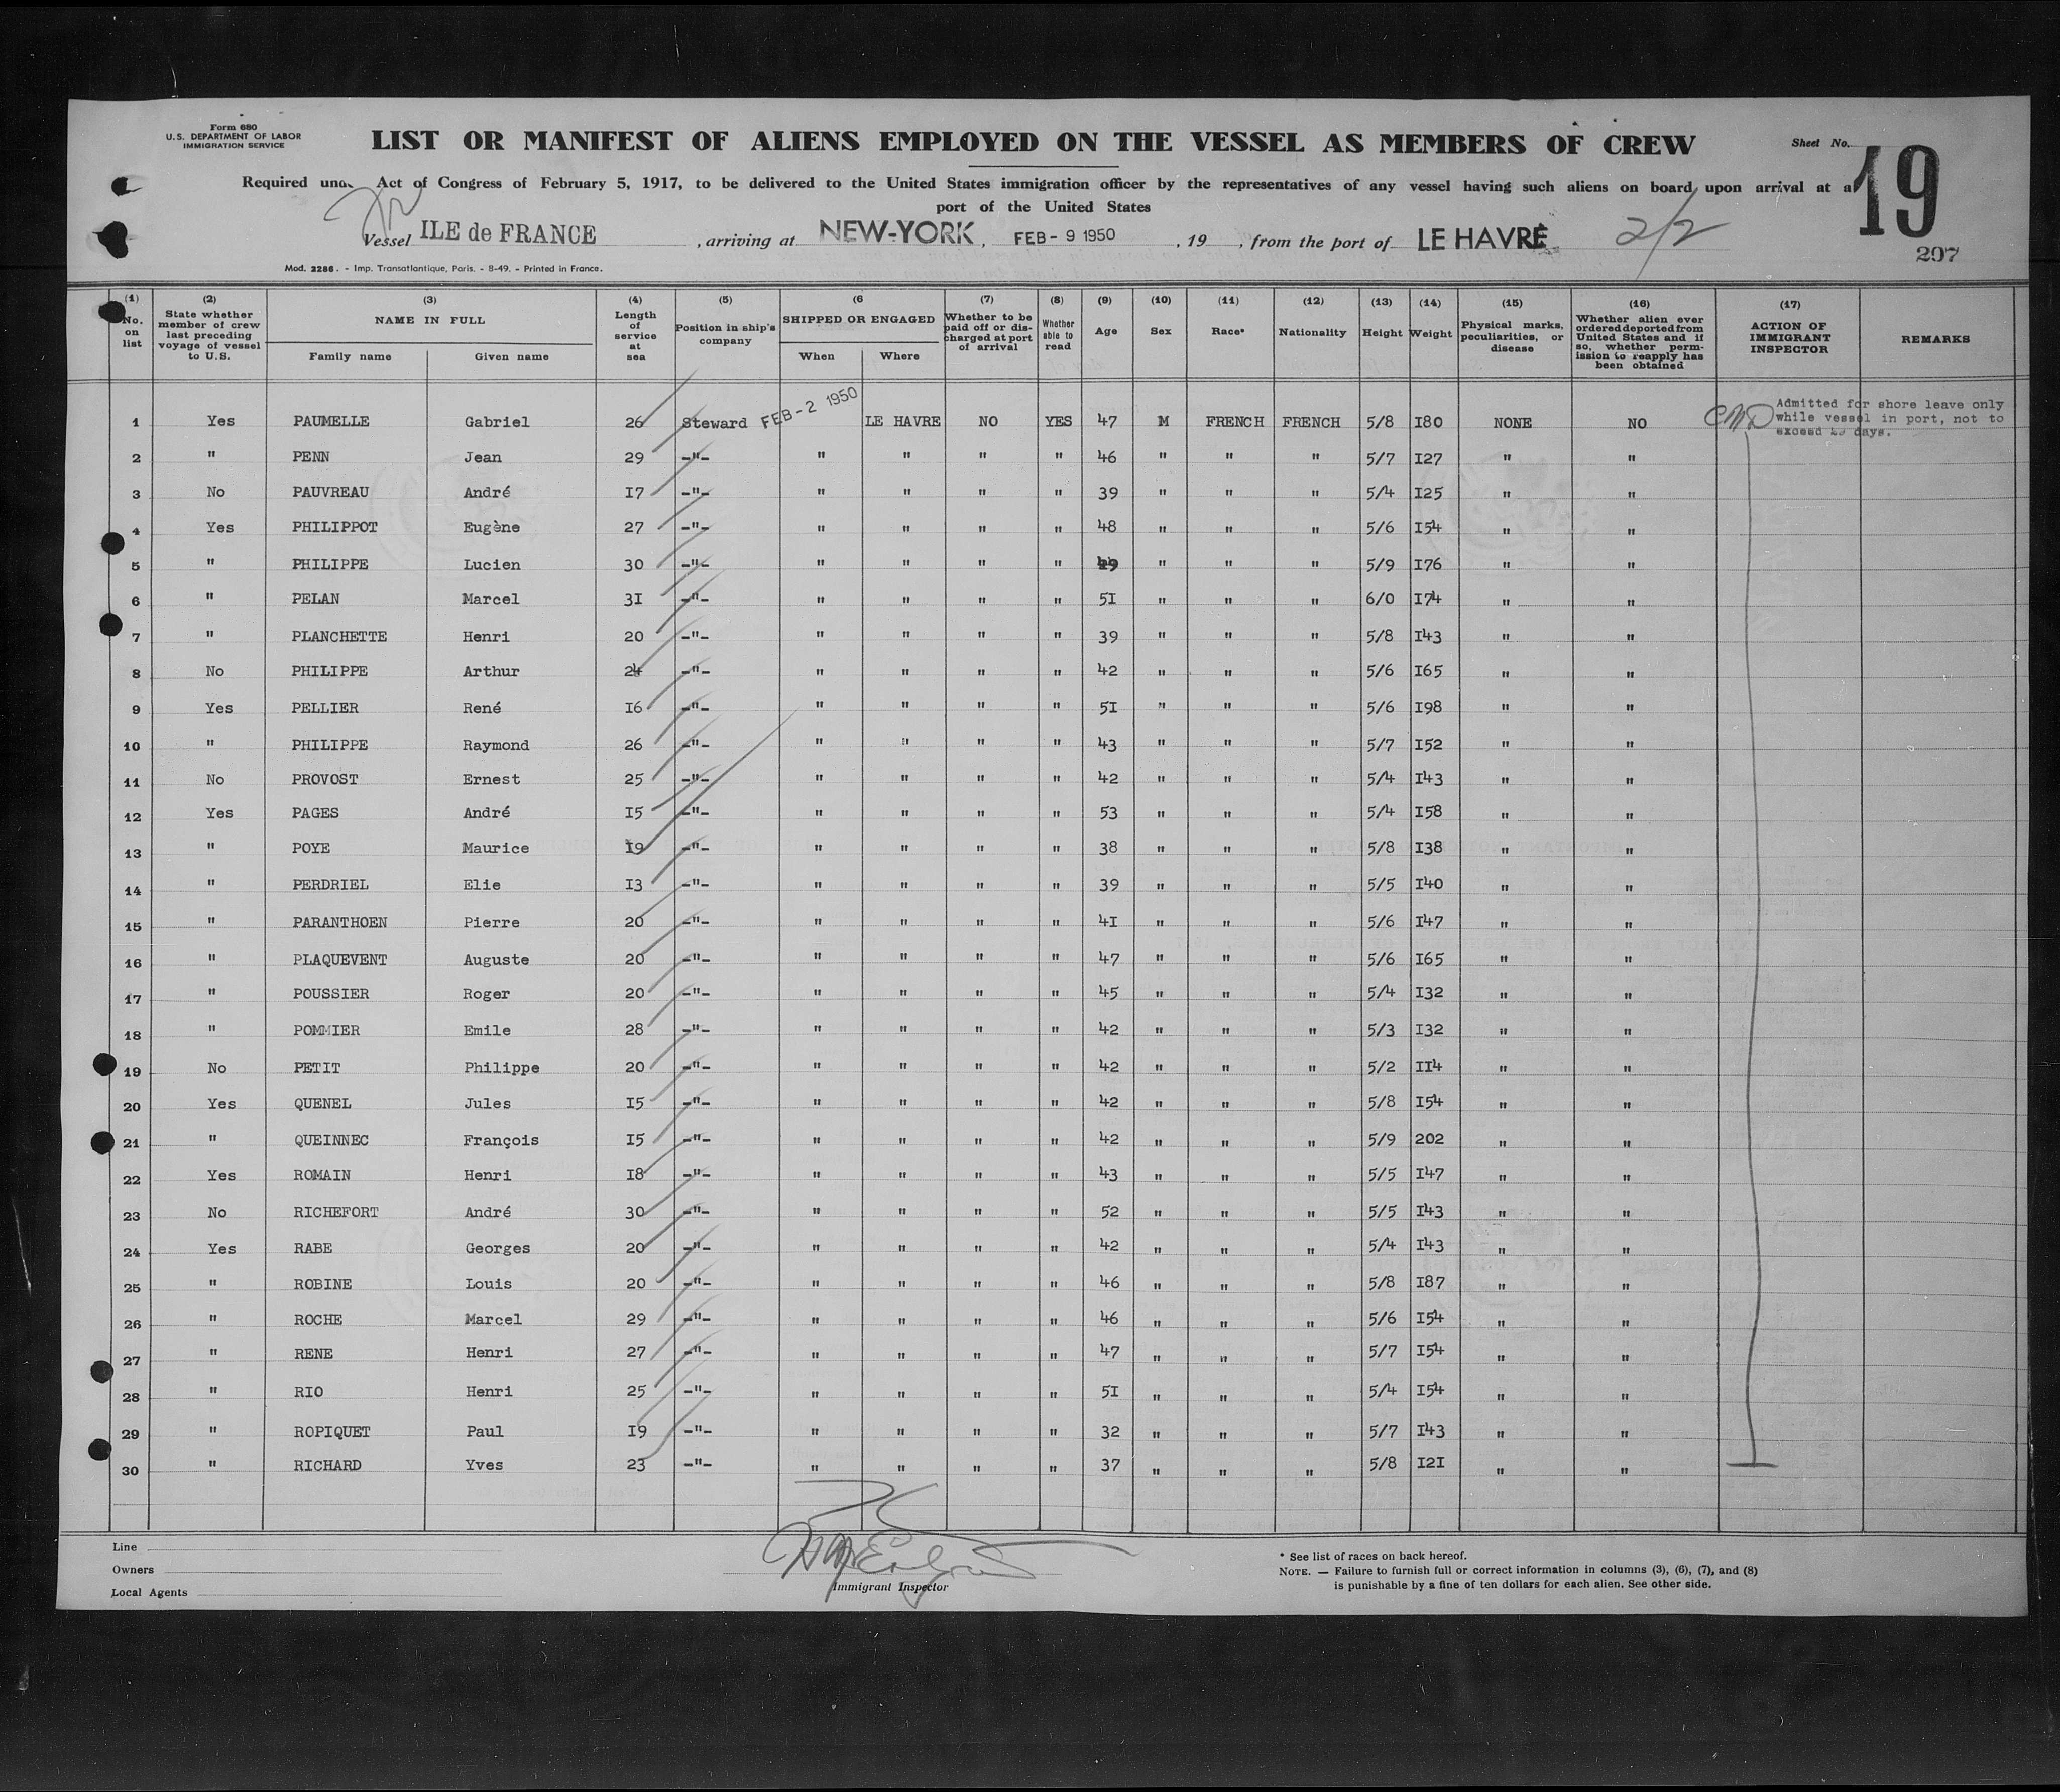 Form 680
U.S. DEPARTMENT OF LABOR
IMMIGRATION SERVICE
LIST OR MANIFEST OF ALIENS EMPLOYED ON THE VESSEL AS MEMBERS OF CREW
Sheet No. 19
Required Act of Congress of February 5, 1917, to be delivered to the United States immigration officer by the representatives of any vessel having such aliens on board upon arrival at a
port of the United States
Vessel ILE de FRANCE , arriving at NEW-YORK , FEB - 9 1950 , 19 , from the port of LE HAVRE 2/2
207
Mod. 2286. - Imp. Transatlantique, Paris. - 8-49. - Printed in France.
(1) No. on list (2) State whether member of crew last preceding voyage of vessel to U.S. (3) NAME IN FULL Family name Given name (4) Length of service at sea (5) Position in ship's company (6 SHIPPED OR ENGAGED When Where (7) Whether to be paid off or discharged at port of arrival (8) Whether able to read (9) Age (10) Sex (11) Race* (12) Nationality (13) Height (14) Weight (15) Physical marks, peculiarities, or disease (16) Whether alien ever ordered deported from United States and if so, whether permission to reapply has been obtained (17) ACTION OF IMMIGRANT INSPECTOR REMARKS
1 Yes PAUMELLE Gabriel 26 Steward FEB - 2 1950 LE HAVRE NO YES 47 M FRENCH FRENCH 5/8 I80 NONE NO Admitted for shore leave only while vessel in port, not to exceed 29 days.
2 " PENN Jean 29 -"- " " " " 46 " " " 5/7 I27 " "
3 No PAUVREAU André I7 -"- " " " " 39 " " " 5/4 I25 " "
4 Yes PHILIPPOT Eugène 27 -"- " " " " 48 " " " 5/6 I54 " "
5 " PHILIPPE Lucien 30 -"- " " " " " " " 5/9 I76 " "
6 " PELAN Marcel 3I -"- " " " " 5I " " " 6/0 I74 " "
7 " PLANCHETTE Henri 20 -"- " " " " 39 " " " 5/8 I43 " "
8 No PHILIPPE Arthur 24 -"- " " " " 42 " " " 5/6 I65 " "
9 Yes PELLIER René I6 -"- " " " " 5I " " " 5/6 I98 " "
10 " PHILIPPE Raymond 26 -"- " " " " 43 " " " 5/7 I52 " "
11 No PROVOST Ernest 25 -"- " " " " 42 " " " 5/4 I43 " "
12 Yes PAGES André I5 -"- " " " " 53 " " " 5/4 I58 " "
13 " POYE Maurice I9 -"- " " " " 38 " " " 5/8 I38 " "
14 " PERDRIEL Elie I3 -"- " " " " 39 " " " 5/5 I40 " "
15 " PARANTHOEN Pierre 20 -"- " " " " 4I " " " 5/6 I47 " "
16 " PLAQUEVENT Auguste 20 -"- " " " " 47 " " " 5/6 I65 " "
17 " POUSSIER Roger 20 -"- " " " " 45 " " " 5/4 I32 " "
18 " POMMIER Emile 28 -"- " " " " 42 " " " 5/3 I32 " "
19 No PETIT Philippe 20 -"- " " " " 42 " " " 5/2 II4 " "
20 Yes QUENEL Jules I5 -"- " " " " 42 " " " 5/8 I54 " "
21 " QUEINNEC François I5 -"- " " " " 42 " " " 5/9 202 " "
22 Yes ROMAIN Henri I8 -"- " " " " 43 " " " 5/5 I47 " "
23 No RICHEFORT André 30 -"- " " " " 52 " " " 5/5 I43 " "
24 Yes RABE Georges 20 -"- " " " " 42 " " " 5/4 I43 " "
25 " ROBINE Louis 20 -"- " " " " 46 " " " 5/8 I87 " "
26 " ROCHE Marcel 29 -"- " " " " 46 " " " 5/6 I54 " "
27 " RENE Henri 27 -"- " " " " 47 " " " 5/7 I54 " "
28 " RIO Henri 25 -"- " " " " 5I " " " 5/4 I54 " "
29 " ROPIQUET Paul I9 -"- " " " " 32 " " " 5/7 I43 " "
30 " RICHARD Yves 23 -"- " " " " 37 " " " 5/8 I2I " "
Line
Owners
Local Agents
Immigrant Inspector
* See list of races on back hereof.
NOTE. — Failure to furnish full or correct information in columns (3), (6), (7), and (8)
is punishable by a fine of ten dollars for each alien. See other side.